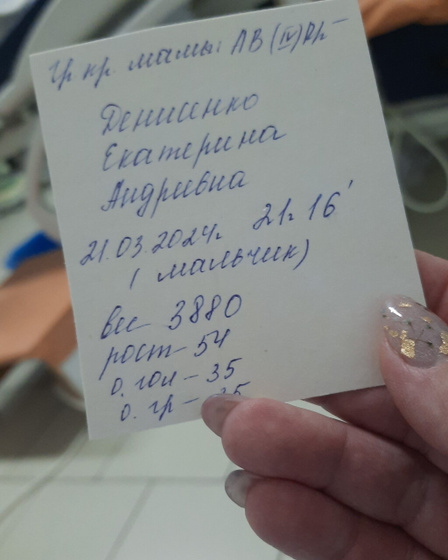 Гр кр. мамы: AB (IV) Rh-
Денисенко
Екатерина
Андриевна
21.03.2024г. 21ч 16'
( мальчик)
вес - 3880
рост - 54
о. гол - 35
о. гр - 35